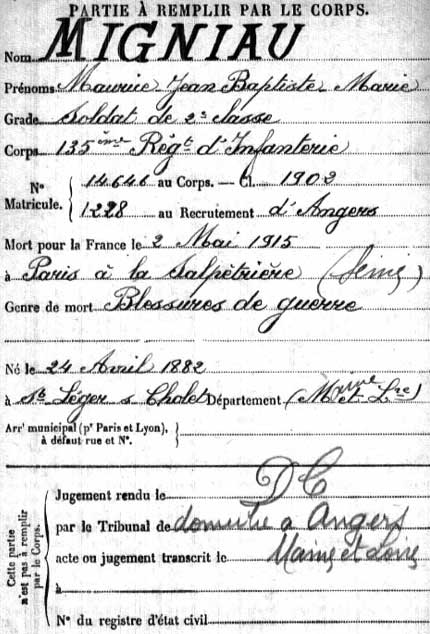 PARTIE À REMPLIR PAR LE CORPS.
Nom MIGNIAU
Prénoms Maurice Jean Baptiste Marie
Grade Soldat de 2e classe
Corps 135ème Régt d'Infanterie
N° Matricule. { 14646 au Corps. — Cl. 1902
1228 au Recrutement d'Angers
Mort pour la France le 2 Mai 1915
à Paris à la Salpêtrière (Seine)
Genre de mort Blessures de guerre
Né le 24 Avril 1882
à St Léger s Cholet Département (Maine et Lre)
Arrt municipal (pr Paris et Lyon), }
à défaut rue et N°.
Cette partie n'est pas à remplir par le Corps. {
DC
Jugement rendu le
par le Tribunal de domicile a Angers
acte ou jugement transcrit le Maine et Loire
à
N° du registre d'état civil